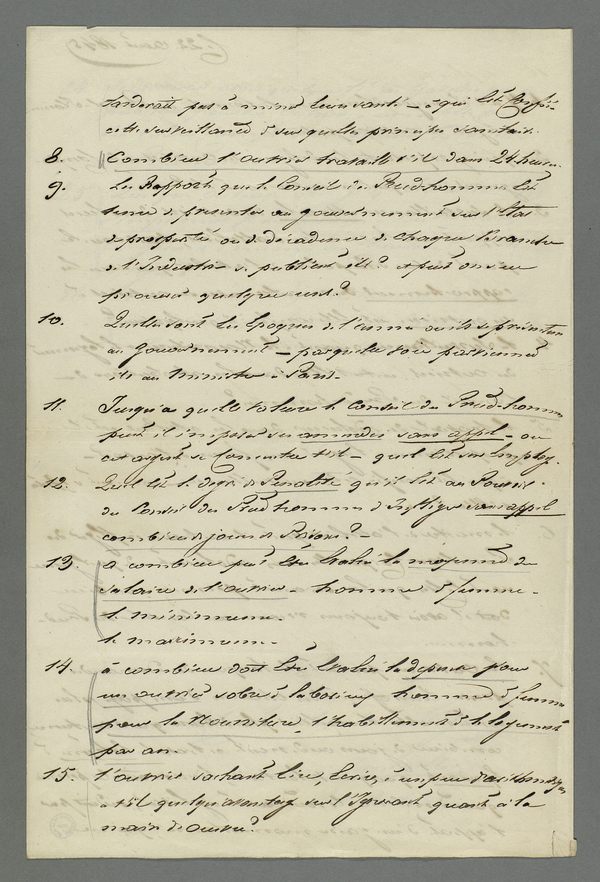 tarderait pas à miner leur santé – à qui est confié
cette surveillance & sur quelles principes sanitair.
8. Combien l'ouvrier travaille t'il dans 24 heures
9. Les Rapports que le Conseil des Prud'hommes est
tenu de présenter au gouvernement sur l'état
de prospérité ou de décadence de chaque branche
de l'Industrie se publient ils? & peut on s'en
procurer quelques uns?
10. Quelles sont les Epoques de l'année où ils se présentent
au Gouvernement – par quelle voie parviennent
ils au Ministère à Paris –
11. Jusqu'à quelle valeur le Conseil des Prud-hommes
peut il imposer ses amendes sans appel – où
cet argent se concentre t'il – quel est son Employ.
12. Quel est le degré de Penalité qu'il est au Pouvoir
du Conseil des Prud hommes d'Infliger sans appel
combien de jours de Prison? –
13. à combien peut être évalué la moyenne du
salaire de l'ouvrier – homme & femme –
le minimum –
le maximum –
14. à combien doit être évalué la depense pour
un ouvrier sobre & laborieux homme & femme
pour la Nourriture, l'habillement & le logement
par an.
15. l'ouvrier sachant lire, Ecrire, & un peu d'arithmétique
a t'il quelqu'avantage sur l'Ignorant quant à la
main d'oeuvre?